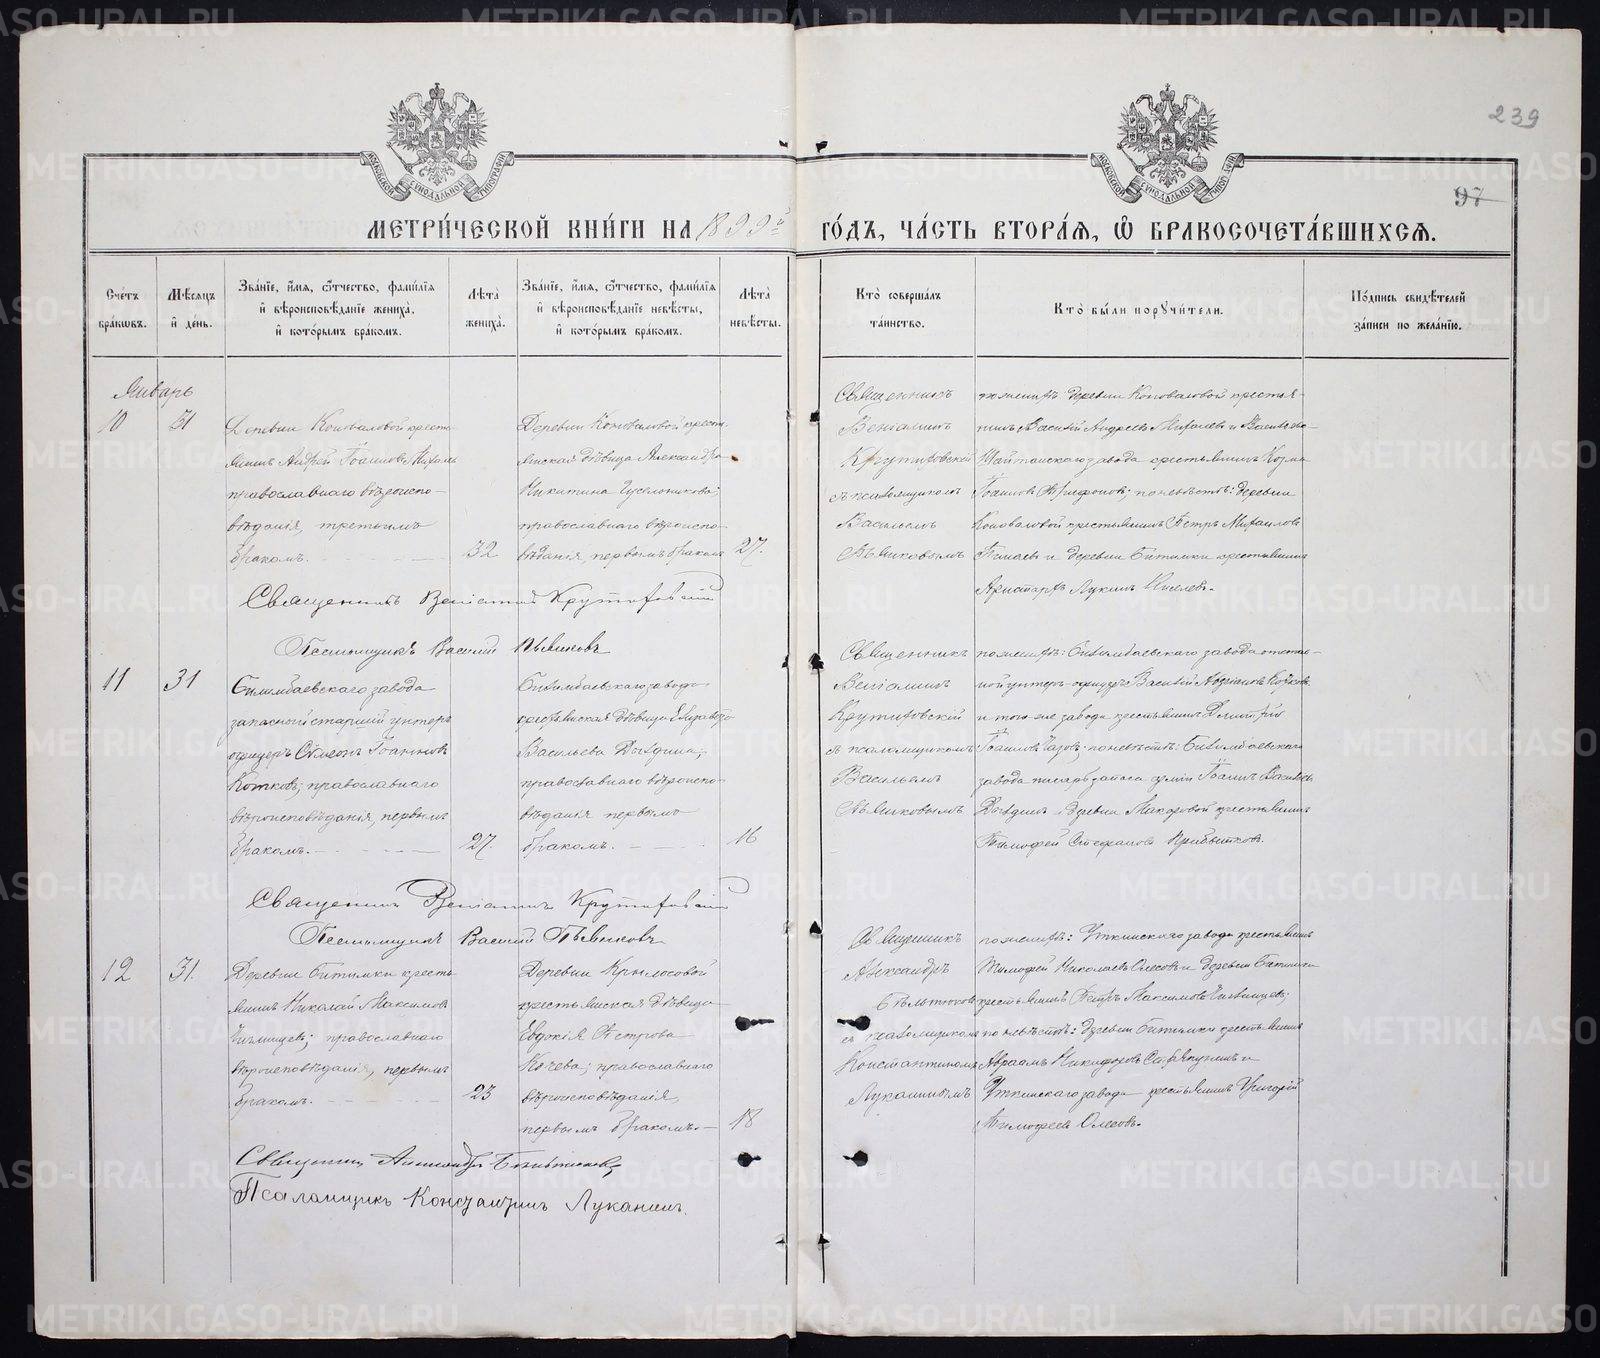 239
97
МОСКОВСКОЙ СѴНОДАЛЬНОЙ ТИПОГРАФІИ
МОСКОВСКОЙ СѴНОДАЛЬНОЙ ТИПОГРАФІИ
МЕТРИ́ЧЕСКОЙ КНИ́ГИ НА 1899й ГО́ДЪ, ЧА́СТЬ ВТОРА́Ѧ, Ѽ БРАКОСОЧЕТА́ВШИХСѦ.
Сче́тъ бра́кѡвъ.
Мѣ́сѧцъ и҆ де́нь.
Зва́нїе, и҆́мѧ, ѻ҆́тчество, фами́лїѧ и҆ вѣроисповѣ́данїе жениха̀. и҆ кото́рымъ бра́комъ.
Лѣ́та жениха̀.
Зва́нїе, и҆́мѧ, ѻ҆́тчество, фами́лїѧ и҆ вѣроисповѣ́данїе невѣ́сты, и҆ кото́рымъ бра́комъ.
Лѣ́та невѣ́сты.
Кто̀ соверша́лъ та́инство.
Кто̀ бы́ли порꙋчи́тели.
По́дпись свидѣ́телей за́писи по жела́нїю.
Январь
10
31
Деревни Коноваловой кресть-
янинъ Андрей Іоанновъ
православнаго вѣроиспо-
вѣданія, третьимъ
бракомъ.
32
Деревни Коноваловой кресть-
янская дѣвица Александра
Никитина
православнаго вѣроиспо-
вѣданія, первымъ бракомъ
27.
Священникъ
Веніаминъ
Крутиховскій
съ псаломщикомъ
Васильемъ
Пѣвиковымъ
по женихѣ: деревни Коноваловой крестья-
нинъ Василій Андреевъ
Шайтанскаго завода крестьянинъ
Іоанновъ по невѣстѣ: деревни
Коноваловой крестьянинъ Петръ Михаиловъ
и деревни Битимки крестьянинъ
Аристархъ Лукинъ Киселевъ.
Священникъ Веніаминъ Крутиховскій
Псаломщикъ Василій
11
31
Билимбаевскаго завода
запасной старшій унтеръ-
офицеръ Симеонъ Іоанновъ
православнаго
вѣроисповѣданія, первымъ
бракомъ.
27.
Билимбаевскаго завода
крестьянская дѣвица Елизавета
Васильева
православнаго вѣроиспо-
вѣданія первымъ
бракомъ.
16
Священникъ
Веніаминъ
Крутиховскій
съ псаломщикомъ
Васильемъ
Пѣвиковымъ
по женихѣ: Билимбаевскаго завода отстав-
ной унтеръ-офицеръ Василій
и того-же завода крестьянинъ Димитрій
Іоанновъ по невѣстѣ: Билимбаевскаго
завода писарь запаса арміи Іоаннъ Васильевъ
деревни Макаровой крестьянинъ
Тимофей Стефановъ
Священникъ Веніаминъ Крутиховскій
Псаломщикъ Василій
12
31.
Деревни Битимки кресть-
янинъ Николай Максимовъ
православнаго
вѣроисповѣданія, первымъ
бракомъ.
23
Деревни Крылосовой
крестьянская дѣвица
Евдокія Петрова
Кочева; православнаго
вѣроисповѣданія,
первымъ бракомъ.
18
Священникъ
Александръ
Бѣльтюковъ
съ псаломщикомъ
Константиномъ
Луканинымъ
по женихѣ: Уткинскаго завода крестьянинъ
Тимофей Николаевъ Олесовъ и деревни Битимки
крестьянинъ Петръ Максимовъ
по невѣстѣ: деревни Битимки крестьянинъ
Авраамъ Никифоровъ и
Уткинскаго завода крестьянинъ Григорій
Тимофеевъ Олесовъ.
Священникъ Александръ Бѣльтюковъ
Псаломщикъ Константинъ Луканинъ.
METRIKI.GASO-URAL.RU